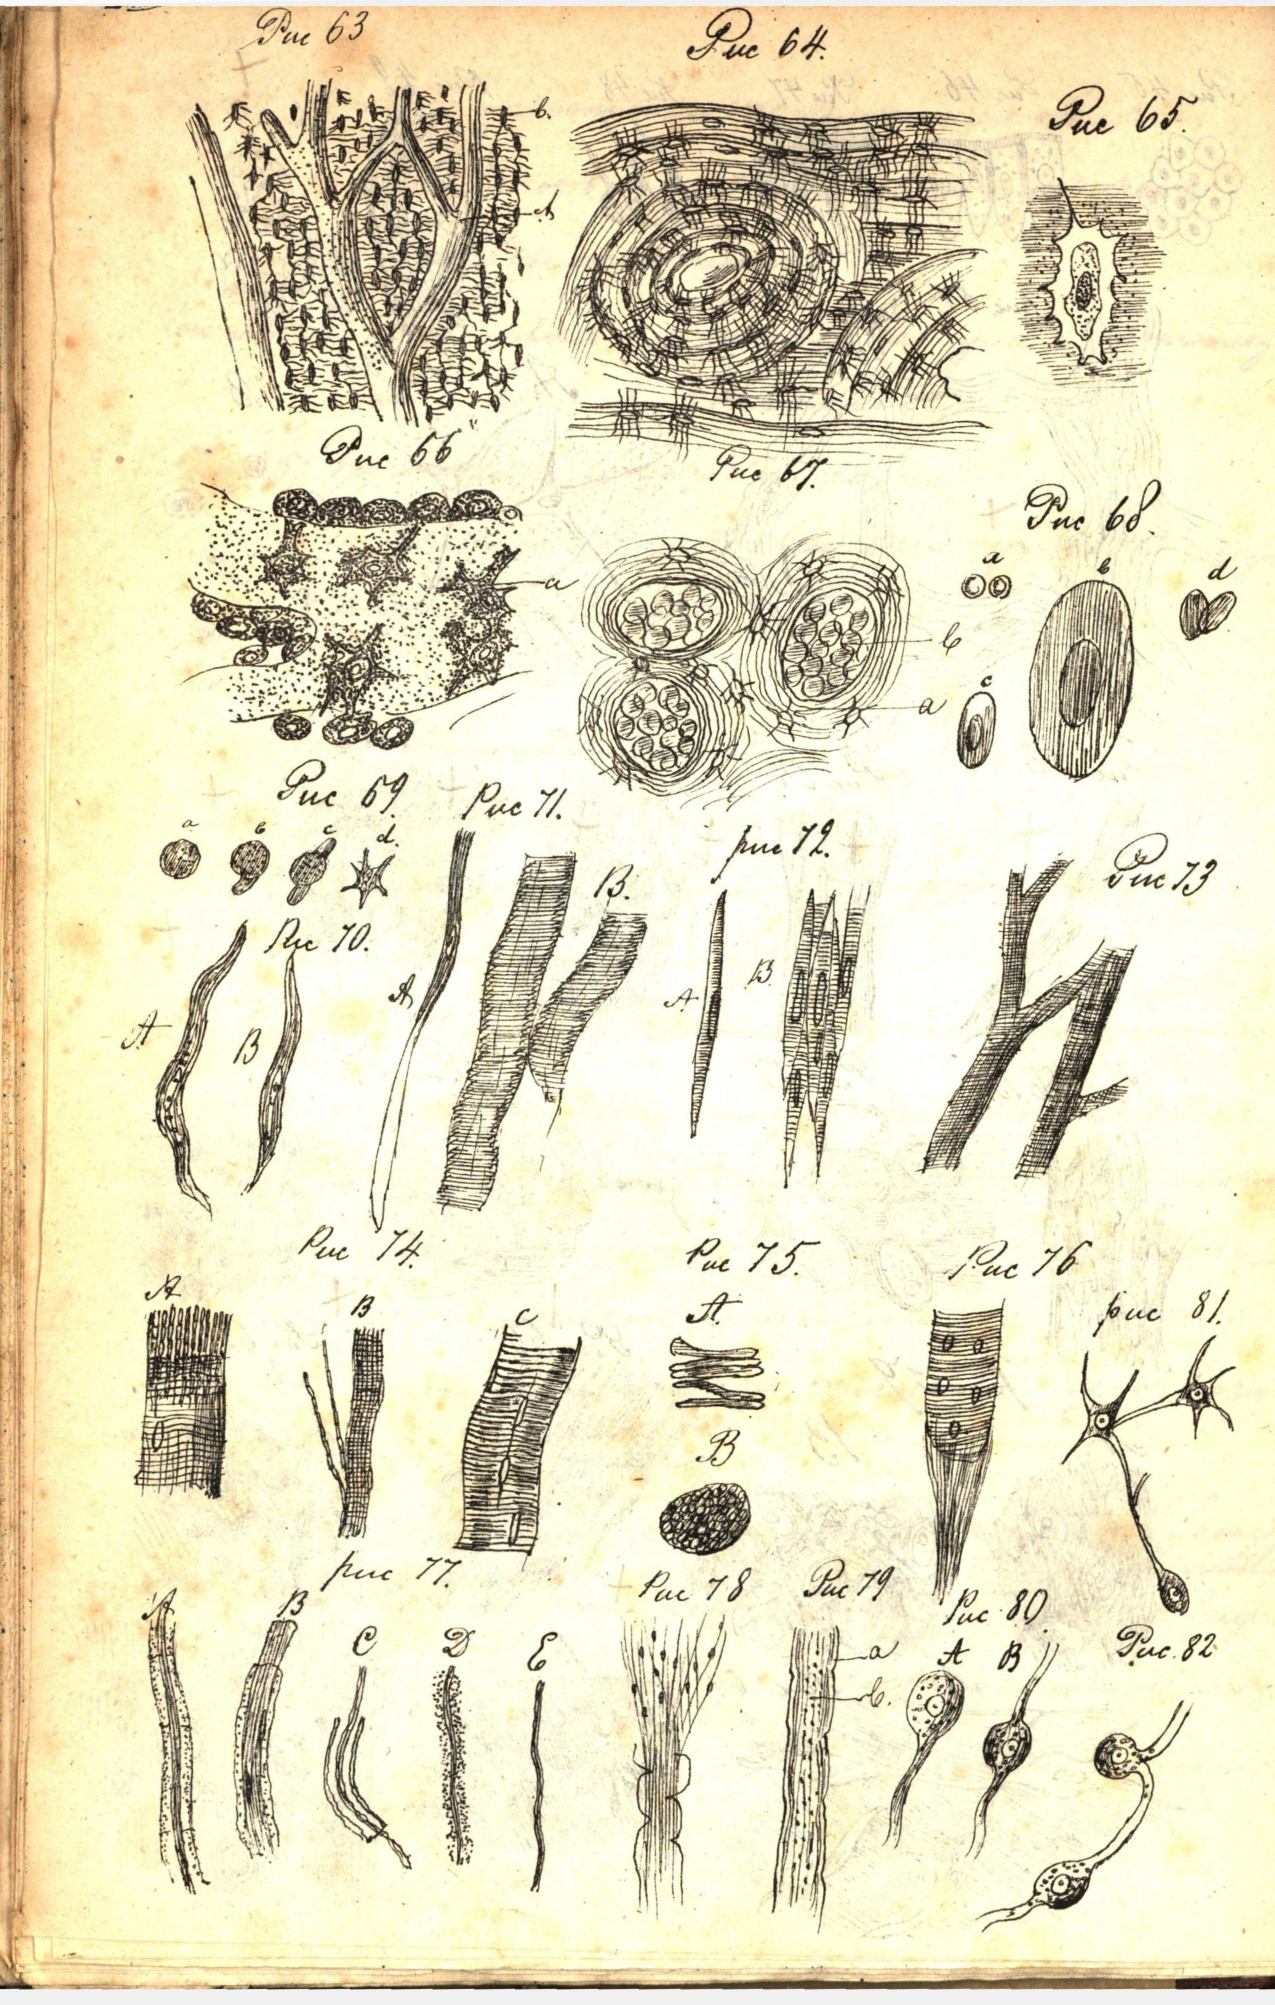 Рис 63
Рис 64.
Рис 65.
b.
A
Рис 66
Рис 67.
Рис 68.
a
b
d
c
a
b
a
Рис 69
Рис 71.
рис 72.
Рис 73
a
b
c
d.
Рис 70.
A
B
A
B.
A
B.
Рис 74.
Рис 75.
Рис 76
рис 81.
A
B
C
A.
B
рис 77.
Рис 78
Рис 79
Рис 80.
Рис. 82
A
B
C
D
E
a
b.
A
B